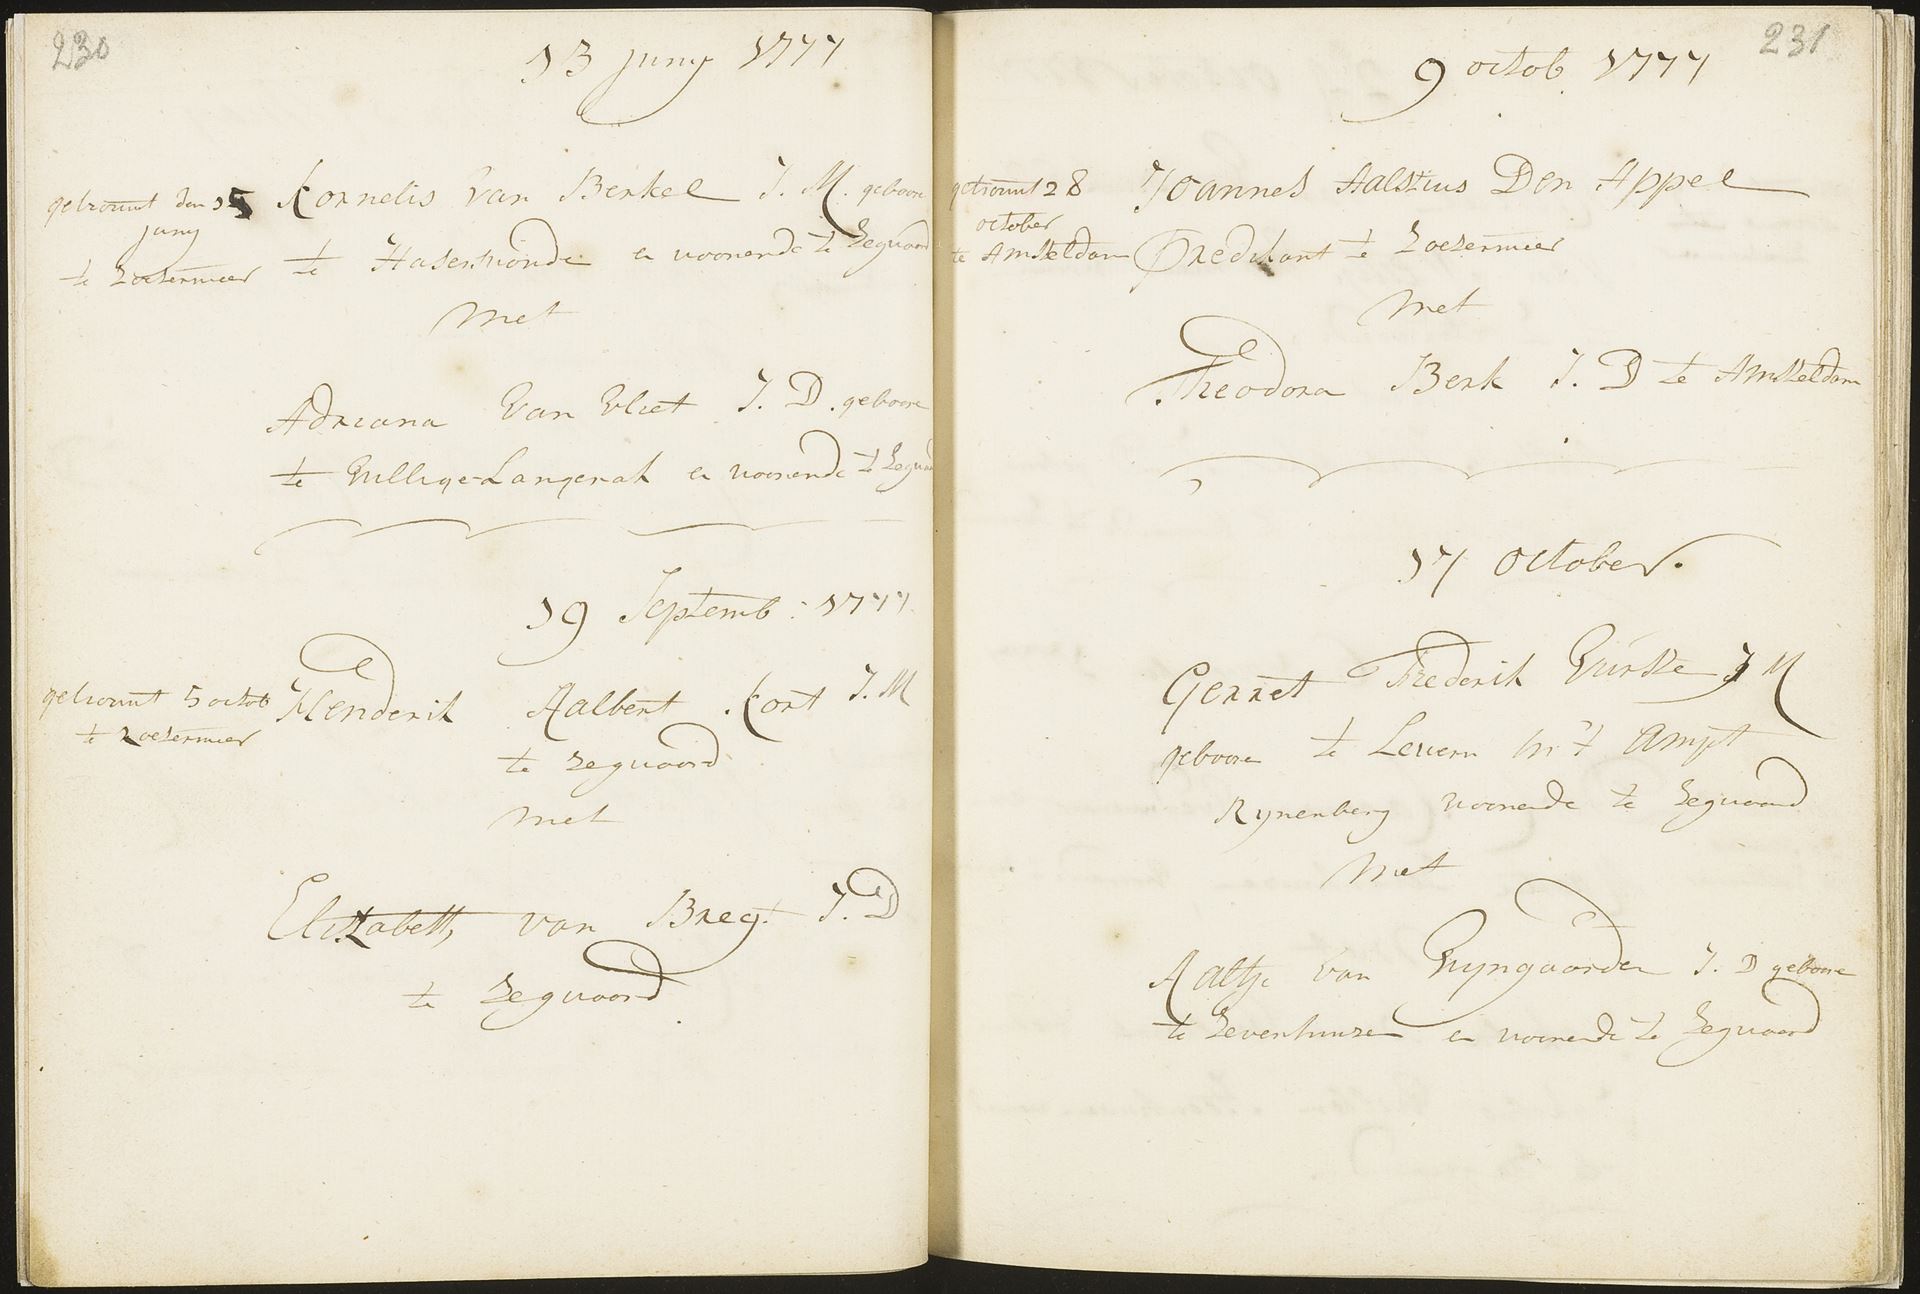 230
13 juny 1777
getrouwt den 15
juny
te Zoetermeer
Kornelis van Berkel J. M. geboore
te Hasertswoude en woonende te Zegwaard
met
Adriana van Vliet J. D. geboore
te Willige-Langerak en woonende te Zegwaa
19 Septemb: 1777
getrouwt 5 octob
te Zoetermeer
Henderik Aalbert Kort J. M
te Zegwaard
met
Elizabeth van Bregt J. D
te Zegwaard
231
9 octob. 1777
getrouwt 28
october
te Amsteldam
Joannes Aalstius Den Appel
Predikant te Zoetermeer
met
Theodora Berk J. D te Amsteldam
17 October.
Gerret Frederik J M
geboore te Levern in 't Ampt
Rynenberg woonende te Zegwaard
met
Aaltje van Wyngaarden J. D geboore
te Zevenhuize en woonende te Zegwaard